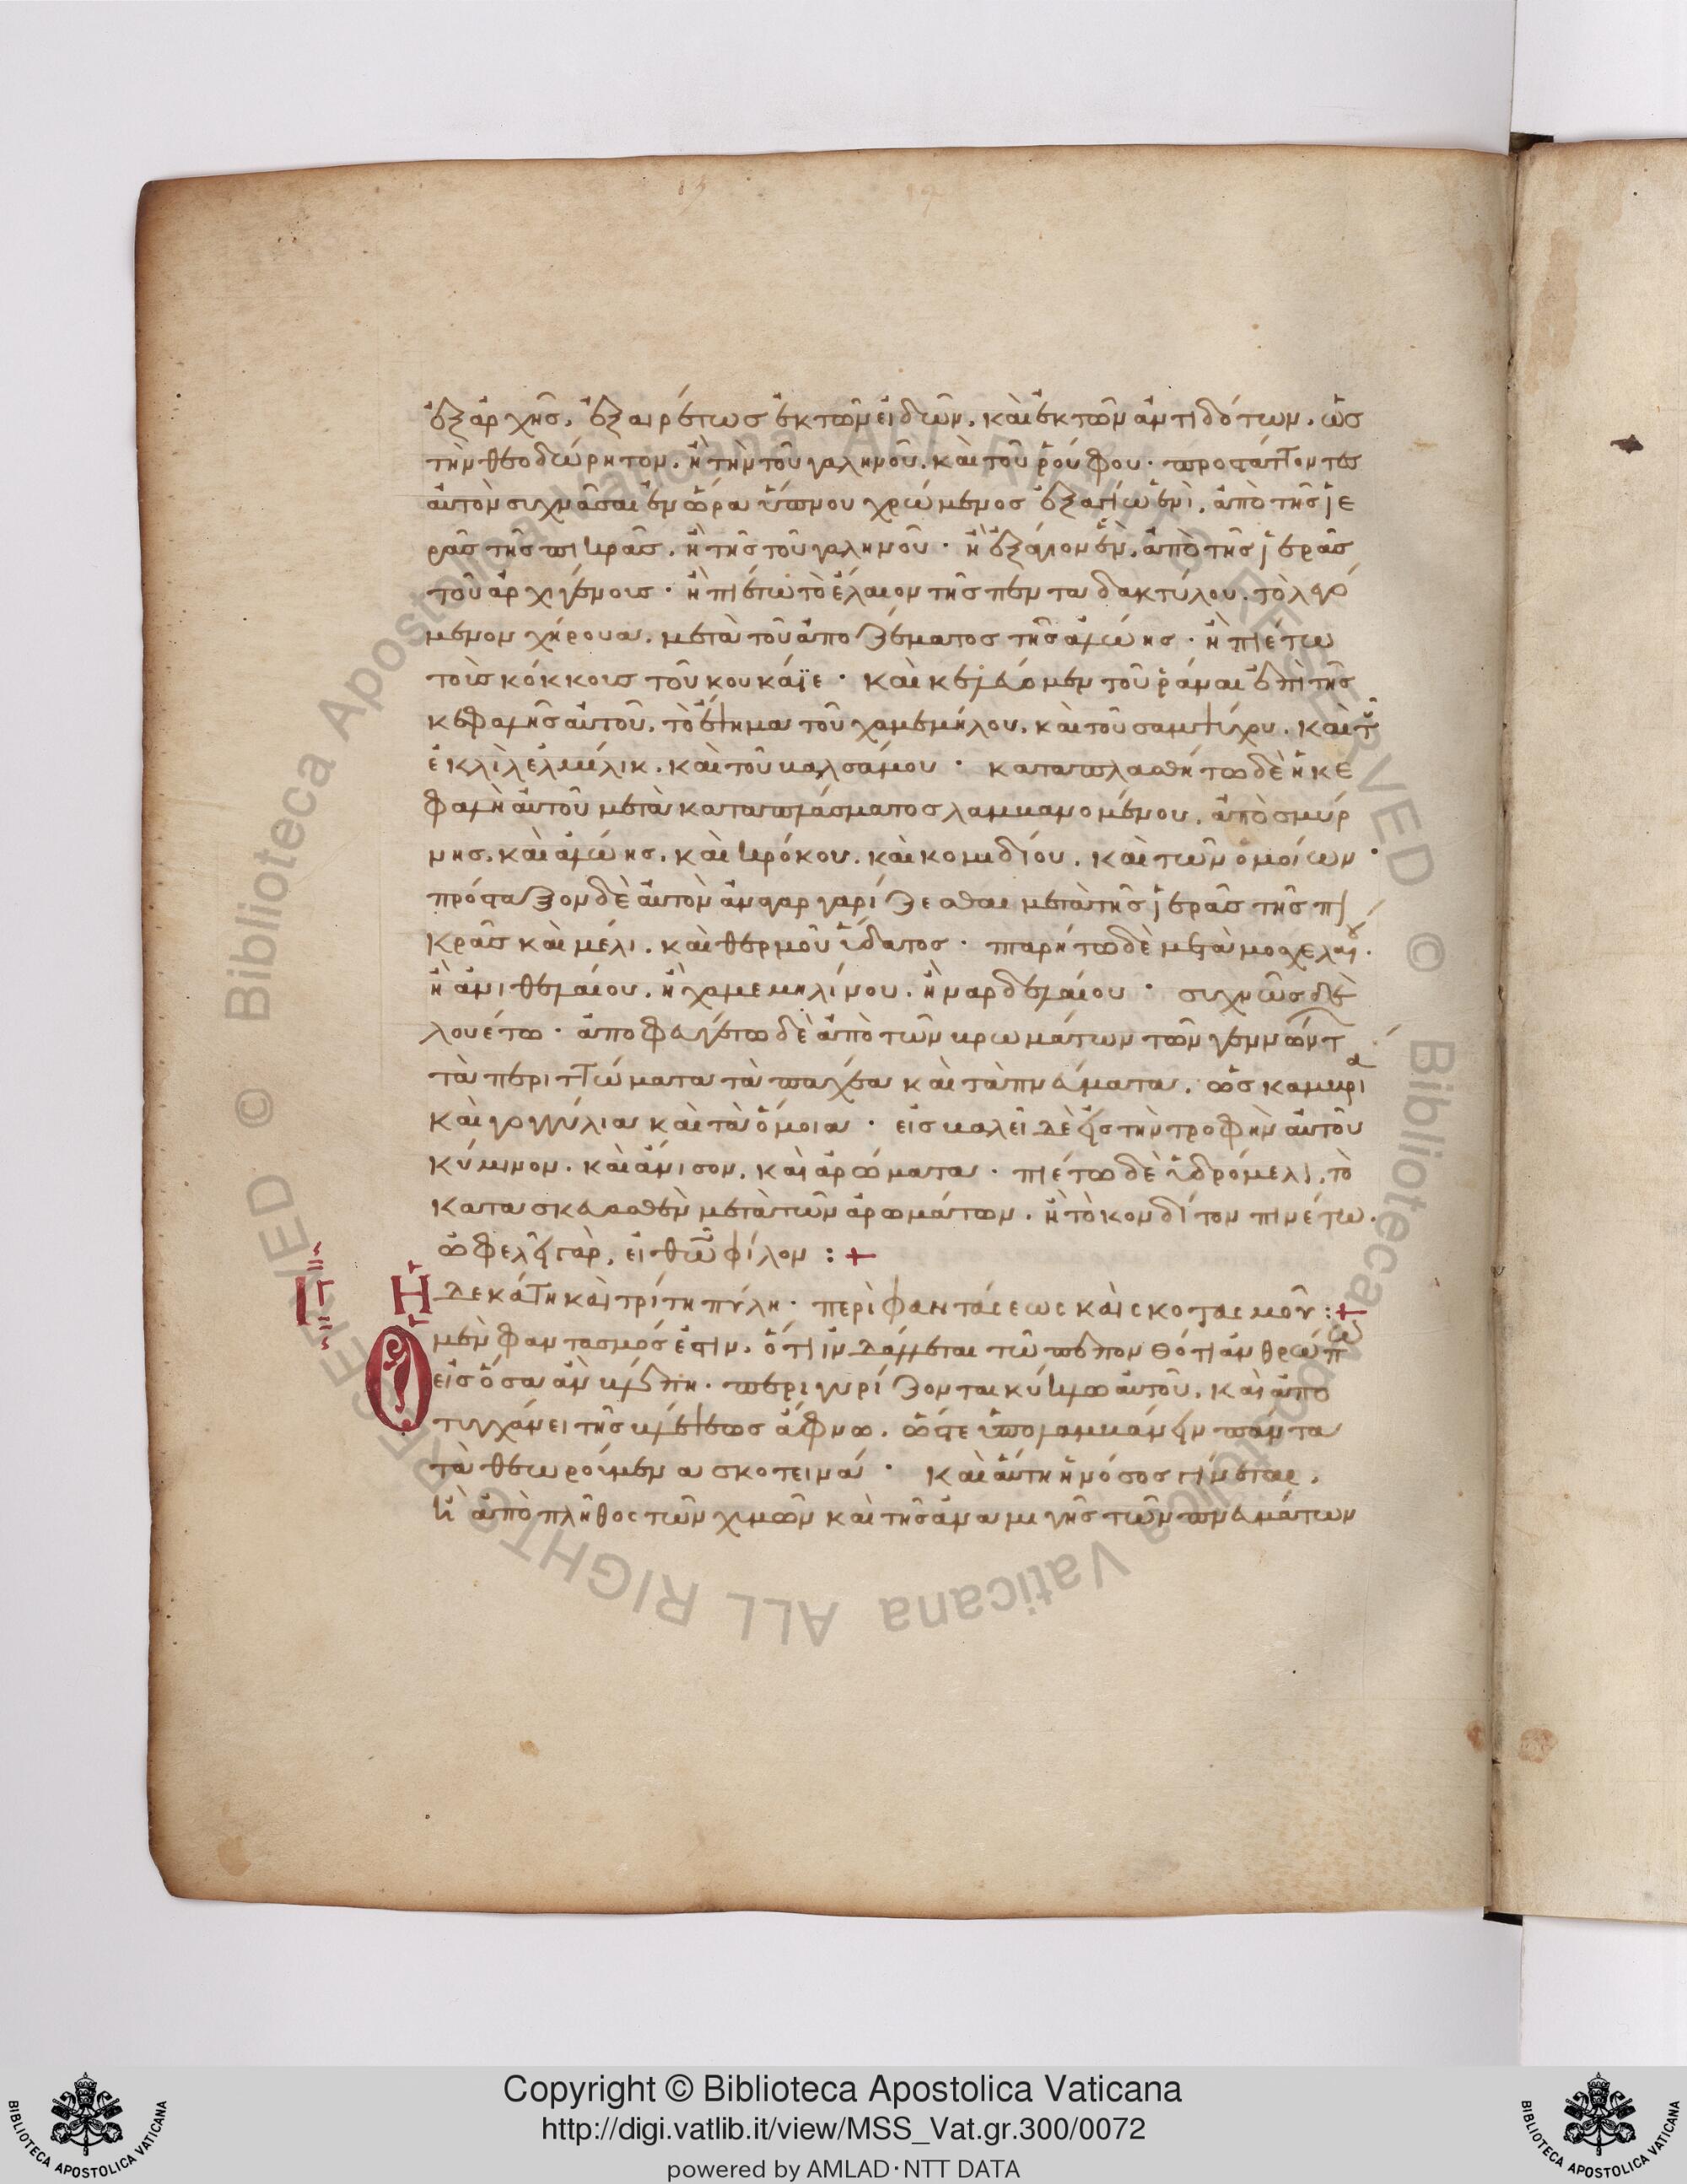 ἐξ ἀρχῆς. ἐξαιρέτως ἐκ τῶν εἰδῶν. καὶ ἐκ τῶν ἀντιδότων. ὡς
τὴν θεοδώρητον. ἢ τὴν τοῦ γαληνοῦ. καὶ τοῦ ῥούφου.
αὐτὸν συχνᾶσαι ἐν ὥρα ὕπνου χρώμενος ἀπὸ τῆς ἱε
ρᾶς τῆς πικρᾶς. ἢ τῆς τοῦ γαληνοῦ. ἢ ἐξάγιον ἓν. ἀπὸ τῆς ἱερᾶς
τοῦ ἀρχιγένους. ἢ πιέτω τὸ ἔλαιον τῆς πενταδακτύλου. τὸ λεγό
μενον χήρουα. μετὰ τοῦ ἀποζέματος τῆς ἀλώης. ἢ πιέτω
τοῖς κόκκοις τοῦ κουκάϊε. καὶ κελεύομεν τοῦ ῥάναι ἐπὶ τῆς
κεφαλῆς αὐτοῦ. τὸ ἕψημα τοῦ χαμεμήλου. καὶ τοῦ σαμψύχου. καὶ τοῦ
ἐκλὶλ ἐλμέλικ. καὶ τοῦ βαλσάμου. καταπλασθήτω δὲ ἡ κε
φαλὴ αὐτοῦ μετὰ καταπλάσματος λαμβανομένου. ἀπὸ σμύρ
νης. καὶ ἀλώης. καὶ κρόκου. καὶ κομιδίου. καὶ τῶν ὁμοίων.
πρόσταζον δὲ αὐτὸν ἀναργαρίζεσθαι μετὰ τῆς ἱερᾶς τῆς πι
κρᾶς καὶ μέλι. καὶ θερμοῦ ὕδατος. παρήτω δὲ μετὰ μοσχελαίου.
ἢ ἀνιθελαίου. ἢ χαμεμηλίνου. ἢ ναρδελαίου. συχνῶς δὲ
λουέτω. ἀποφευγέτω δὲ ἀπὸ τῶν βρωμάτων τῶν γεννώντων
τὰ περιττώματα τὰ παχέα καὶ τὰ πνεύματα. ὡς κάμβρια
καὶ γογγύλια καὶ τὰ ὅμοια. εἰσβαλεῖ δὲ εἰς τὴν τροφὴν αὐτοῦ
κύμινον. καὶ ἄνισον. καὶ ἀρώματα. πιέτω δὲ ὑδρόμελι. τὸ
κατασκευασθὲν μετὰ τῶν ἀρωμάτων. ἢ τὸ κονδίτον πινέτω.
ὠφελεῖ γὰρ. εἰ θεῷ φίλον : +
ΙΓ Ἡ δεκάτη καὶ τρίτη πύλη. περὶ φαντάσεως καὶ σκοτασμοῦ : +
Ὁ μὲν φαντασμός ἐστιν. ὅτι ἰνδάλλεται τῷ πεπονθότι ἀνθρώπῳ
εἰς ὅσα ἂν βλέπῃ. περιγυρίζονται κύκλῳ αὐτοῦ. καὶ ἀπο
τυγχάνει τῆς βλέψεως ἄφνω. ὥστε ὑπολαμβάνειν πάντα
τὰ θεωρούμενα σκοτεινά. καὶ αὕτη ἡ νόσος γίνεται.
ἢ ἀπὸ πλῆθος τῶν χυμῶν καὶ τῆς ἀναμιγῆς τῶν πνευμάτων
Copyright © Biblioteca Apostolica Vaticana
http://digi.vatlib.it/view/MSS_Vat.gr.300/0072
powered by AMLAD·NTT DATA